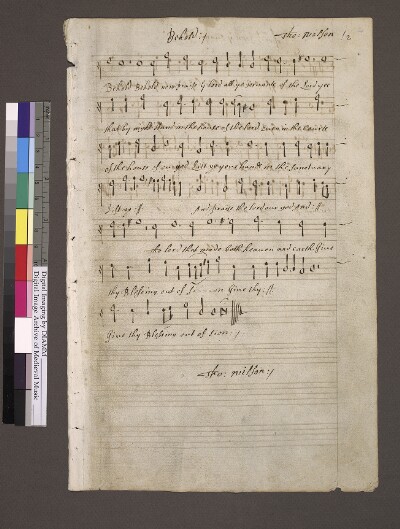 Behold:/ Tho: Wilson 12
Behold Behold now praise ye lord all ye servants of the Lord yee
that by night stand in the house of the lord Even in the Courts
of the house of our god Lift up your hands in the Sanctuary
And praise the lord our god and
the lord that made both heaven and earth Give
thy Blessing out of on Give thy
Give thy Blessing out of Sion:/
Tho: Wilson:/
Digital Imaging by DIAMM
Digital Image Archive of Medieval Music